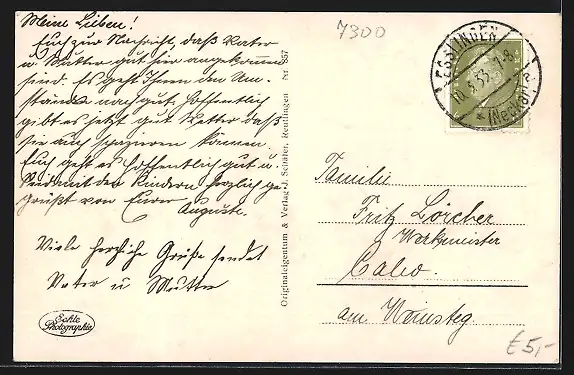 Meine Lieben!
Euch zur Nachricht, daß Vater
u. Mutter gut hir angekommen
sind. Es geht Ihnen den Um-
ständen nach gut. Hoffentlich
gibt es jetzt gut Wetter daß
sie auch spazieren können.
Euch geht es hoffentlich gut u.
seid mit den Kindern herzlich ge-
grüßt von Eurer
Auguste.
Viele herzliche Grüße sendet
Vater u Mutter
Echte
Photographie
Originaleigentum & Verlag J. Schäfer, Reutlingen Nr 857
7300
ESSLINGEN
5.33. 7-8
(Neckar)
Familie
Fritz Lörcher
Werkmeister
Calw.
am Weinsteg
€5,-